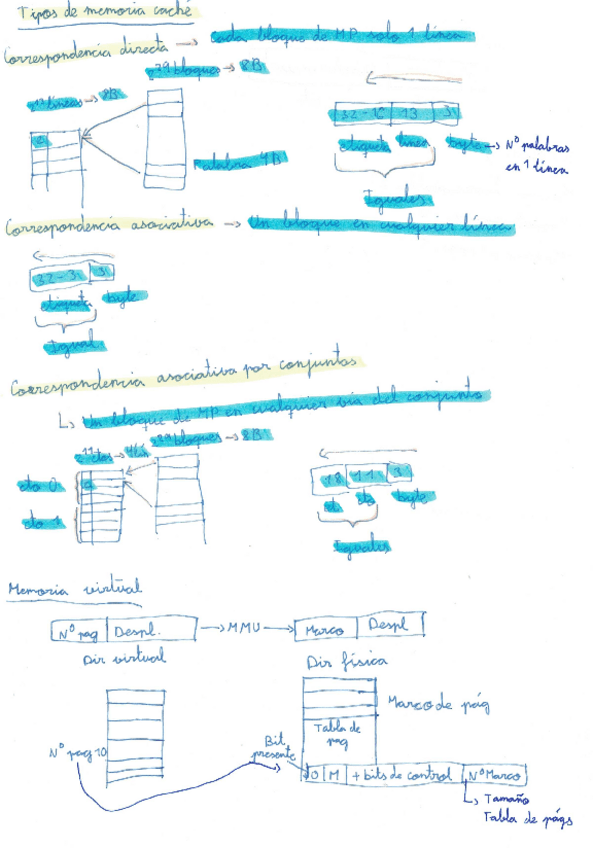 Tipos de memoria caché
Correspondencia directa → Cada bloque de MP solo 1 línea
2^29 bloques → 8B
2^13 líneas → 8B
Palabra 4B
32-16 | 13 | 3
etiqueta línea byte → Nº palabras
en 1 línea
Iguales
Correspondencia asociativa → Un bloque en cualquier línea
32-3 | 3
etiqueta byte
Igual
Correspondencia asociativa por conjuntos
↳ Un bloque de MP en cualquier vía del conjunto
2^11 ctos → 4lín
2^29 bloques → 8B
cto 0
cto 1
18 | 11 | 3
et cto byte
Iguales
Memoria virtual
Nº pag | Despl. → MMU → Marco | Despl
Dir virtual
Dir física
Marco de pág
Tabla de
pag
Nº pag 10
Bit
presente
0 | M | + bits de control | Nº Marco
↳ Tamaño
Tabla de págs